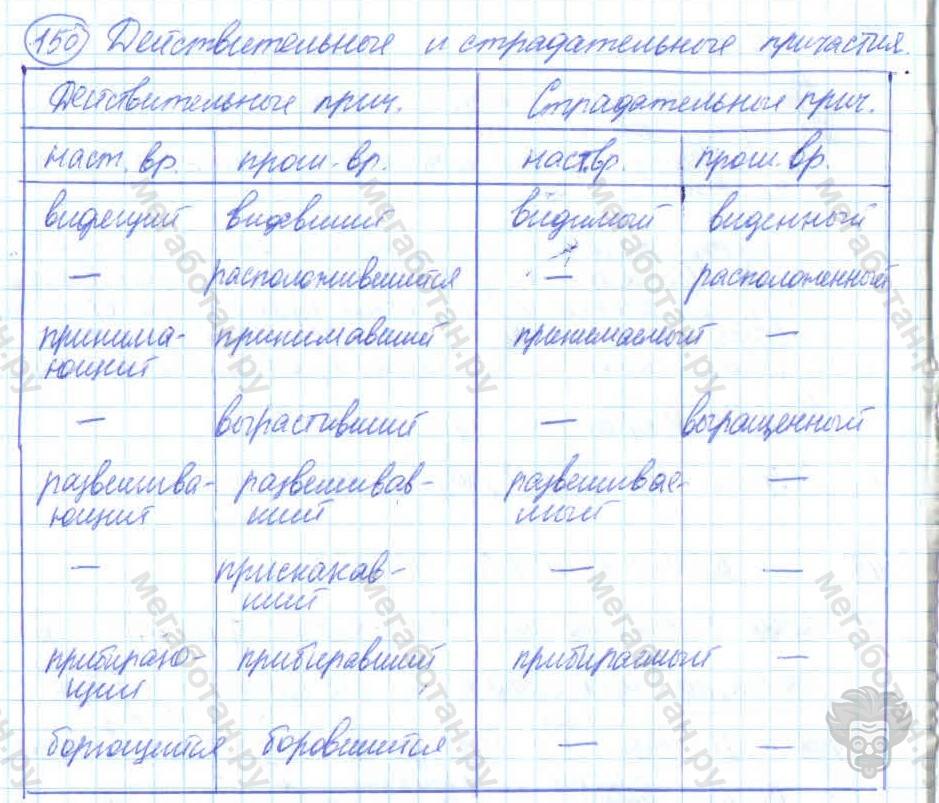 150 Действительные и страдательные причастия.
Действительные прич. Страдательные прич.
наст. вр. прош. вр. наст. вр. прош. вр.
видящий видевший видимый виденный
— расположившийся — расположенный
принима- принимавший принимаемый —
ющий
— вырастивший — выращенный
развешива- развешивав- развешивае- —
ющий ший мый
— прискакав- — —
ший
прибираю- прибиравший прибираемый —
щий
борющийся боровшийся — —
мегаботан.ру